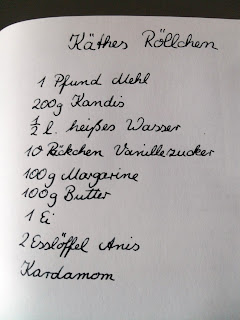 Käthes Röllchen
1 Pfund Mehl
200g Kandis
1/2 l. heißes Wasser
10 Päckchen Vanillezucker
100g Margarine
100g Butter
1 Ei
2 Esslöffel Anis
Kardamom